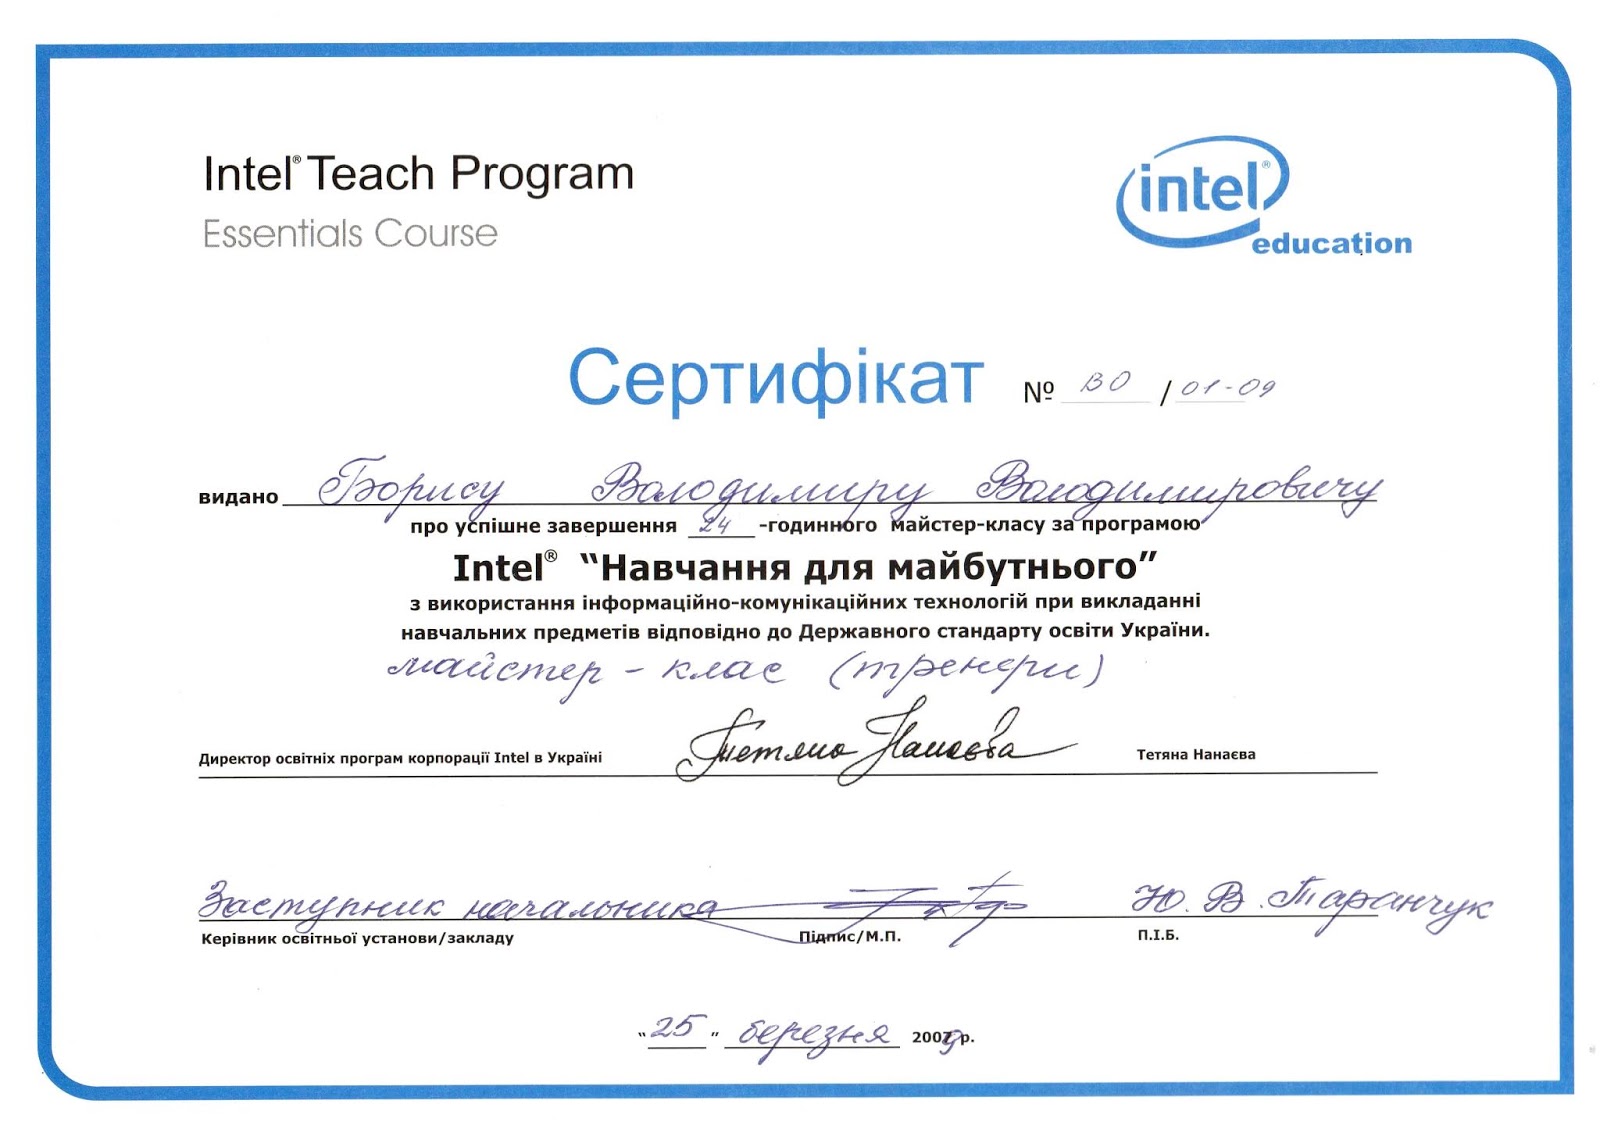 Intel® Teach Program
Essentials Course
intel®
education
Сертифікат № ВО / 01-09
видано Борису Володимиру Володимировичу
про успішне завершення 24 -годинного майстер-класу за програмою
Intel® “Навчання для майбутнього”
з використання інформаційно-комунікаційних технологій при викладанні
навчальних предметів відповідно до Державного стандарту освіти України.
майстер - клас (тренери)
Директор освітніх програм корпорації Intel в Україні Тетяна Нанаєва Тетяна Нанаєва
Заступник начальника Ю. В. Таранчук
Керівник освітньої установи/закладу Підпис/М.П. П.І.Б.
“25” березня 2009 р.